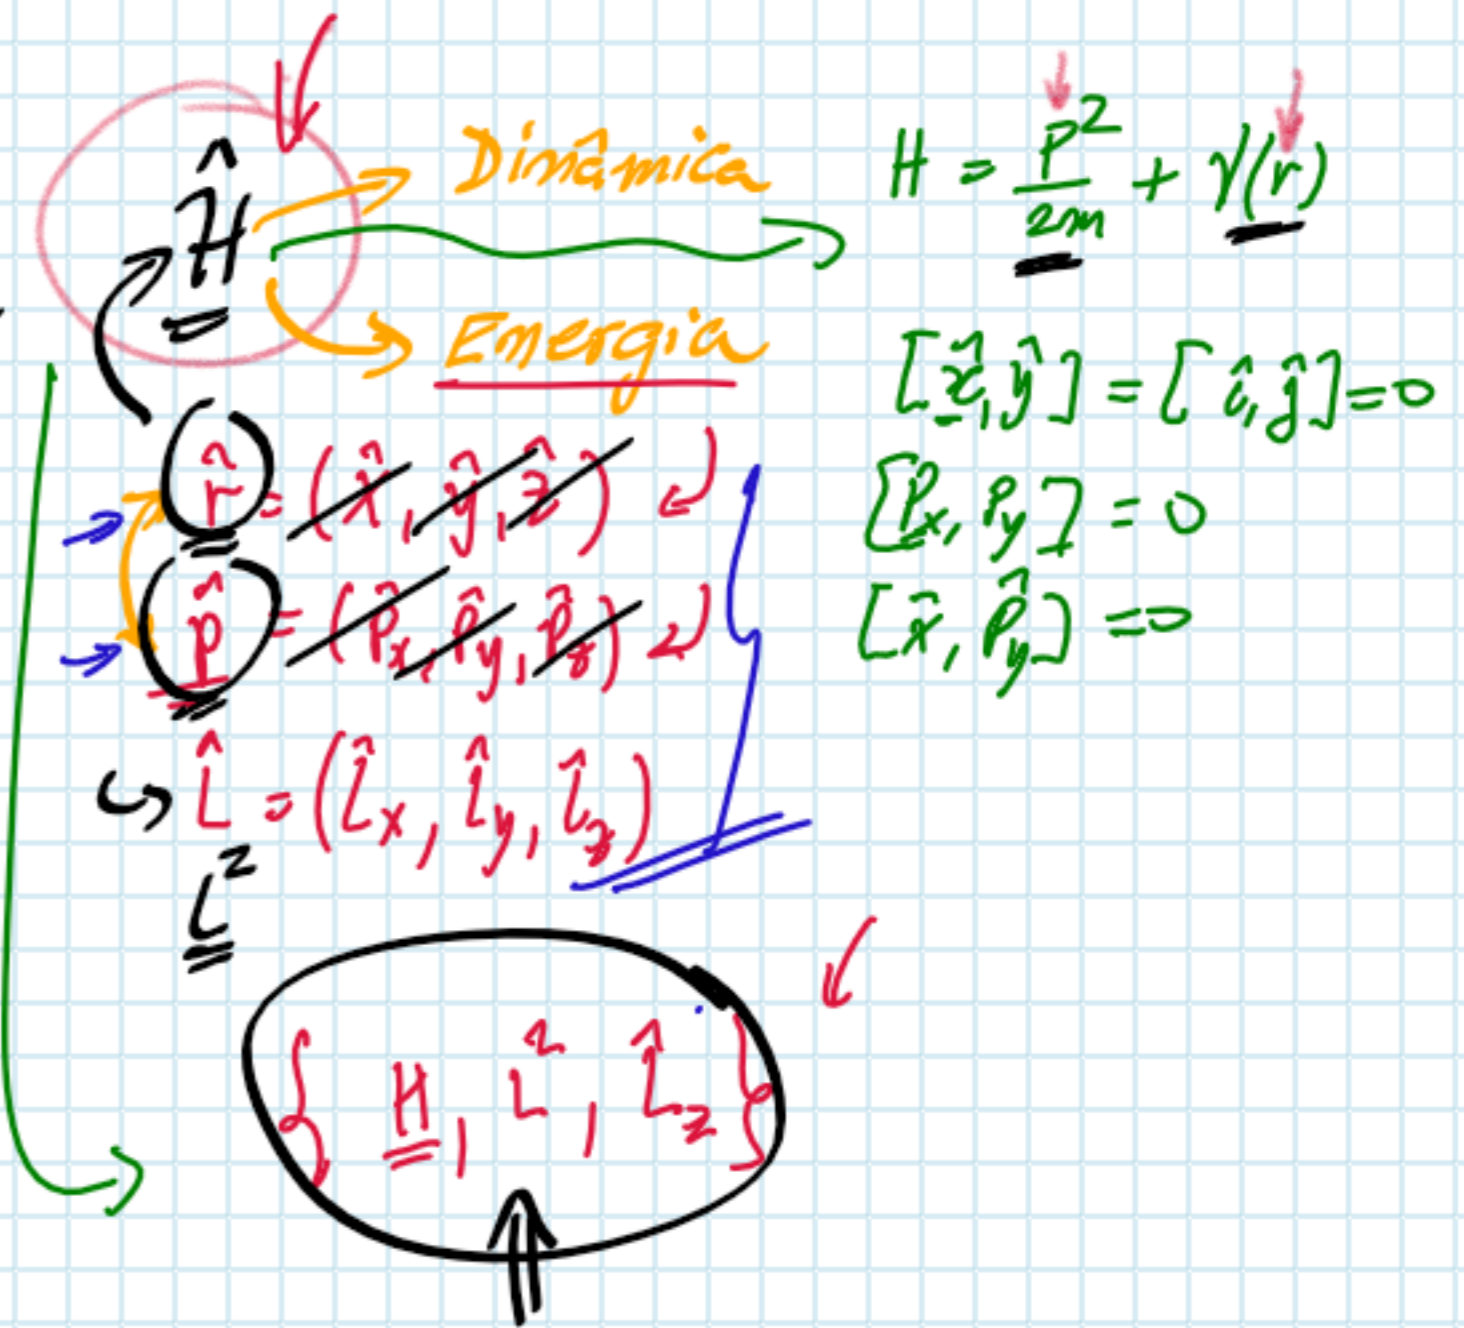 Ĥ
Dinâmica
Energia
H = P²/2m + V(r)
[x̂, ŷ] = [î, ĵ] = 0
[Px, Py] = 0
[x̂, P̂y] = 0
r̂ = (x̂, ŷ, ẑ)
p̂ = (P̂x, P̂y, P̂z)
L̂ = (L̂x, L̂y, L̂z)
L²
{ H, L², L̂z }